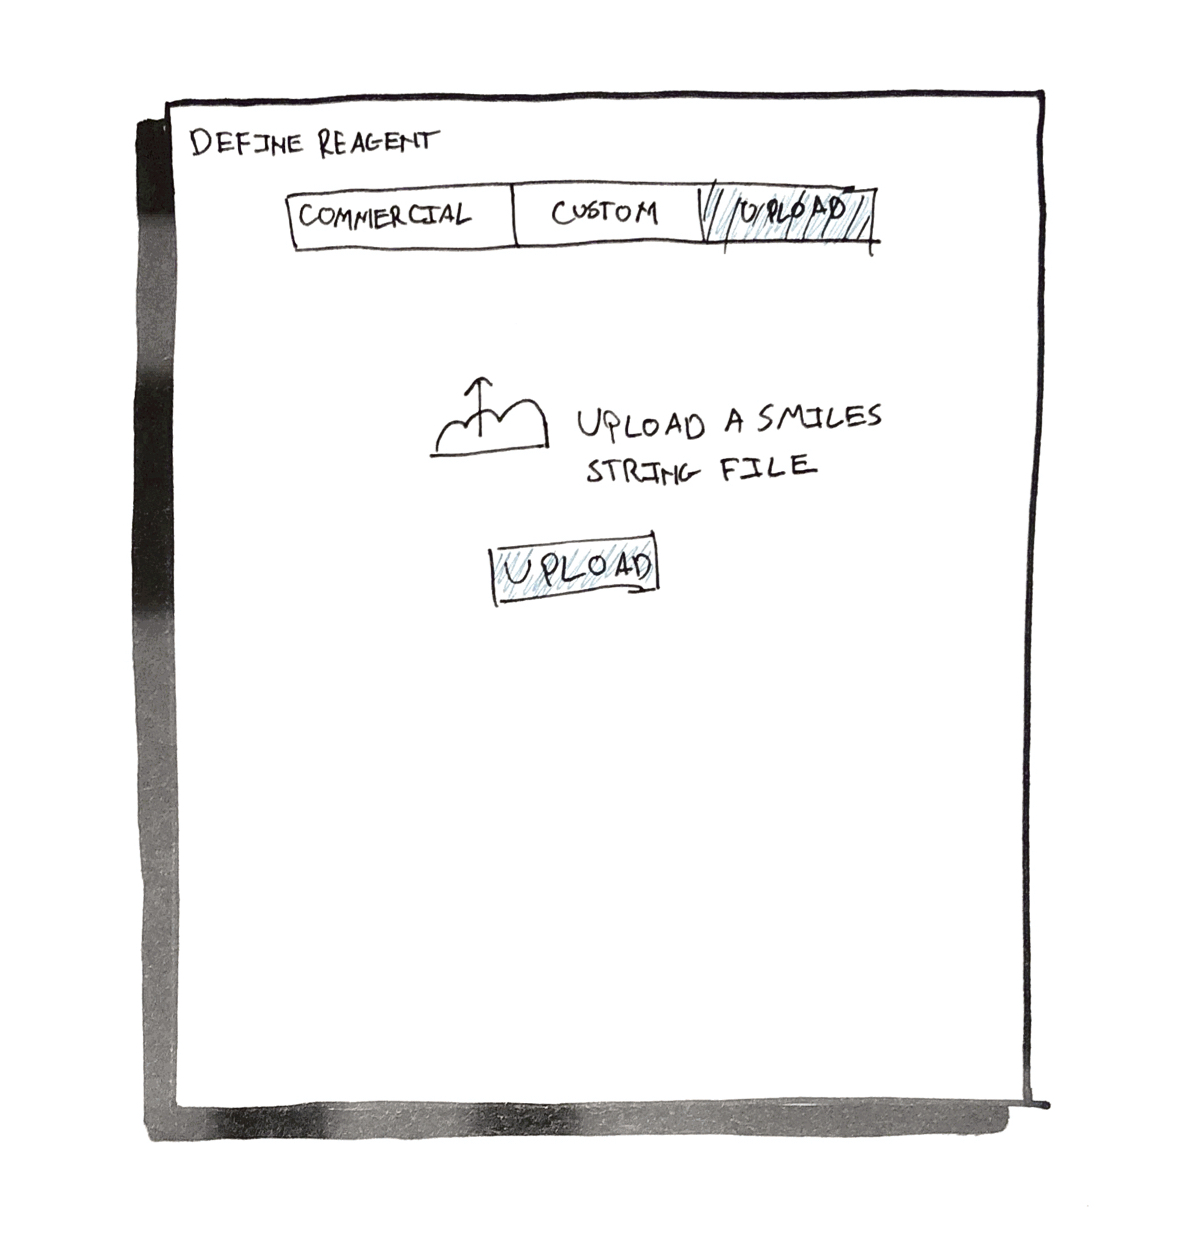 DEFINE REAGENT
COMMERCIAL CUSTOM UPLOAD
UPLOAD A SMILES
STRING FILE
UPLOAD